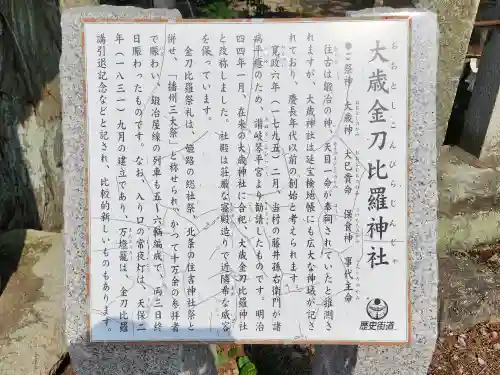 大歳金刀比羅神社
おおとしこんぴらじんじゃ
●ご祭神 大歳神 大己貴命 保食神 事代主命
往古は鍛冶の神、天目一命が奉祠されていたと推測さ
れますが、大歳神社は延宝検地帳にも広大な神域が記さ
れており、慶長年代以前の創始と考えられます。
寛政六年(一七九五)二月、当村の藤井孫右衛門が諸
病平癒のため、讃岐琴平宮より勧請したものです。明治
四四年一月、在来の大歳神社に合祀、大歳金刀比羅神社
と改称しました。社殿は荘厳な寝殿造りで近隣希な威容
を保っています。
金刀比羅祭礼は、姫路の総社祭、北条の住吉神社祭と
併せ、「播州三大祭」と称せられ、かつて十万余の参拝者
で賑わい、鍛冶屋線の列車も五~六輛編成で、両三日終
日賑わったものです。なお、入り口の常夜灯は、天保二
年(一八三一)九月の建立であり、万燈籠は、金刀比羅
講引退記念などと記され、比較的新しいものもあります。
歴史街道